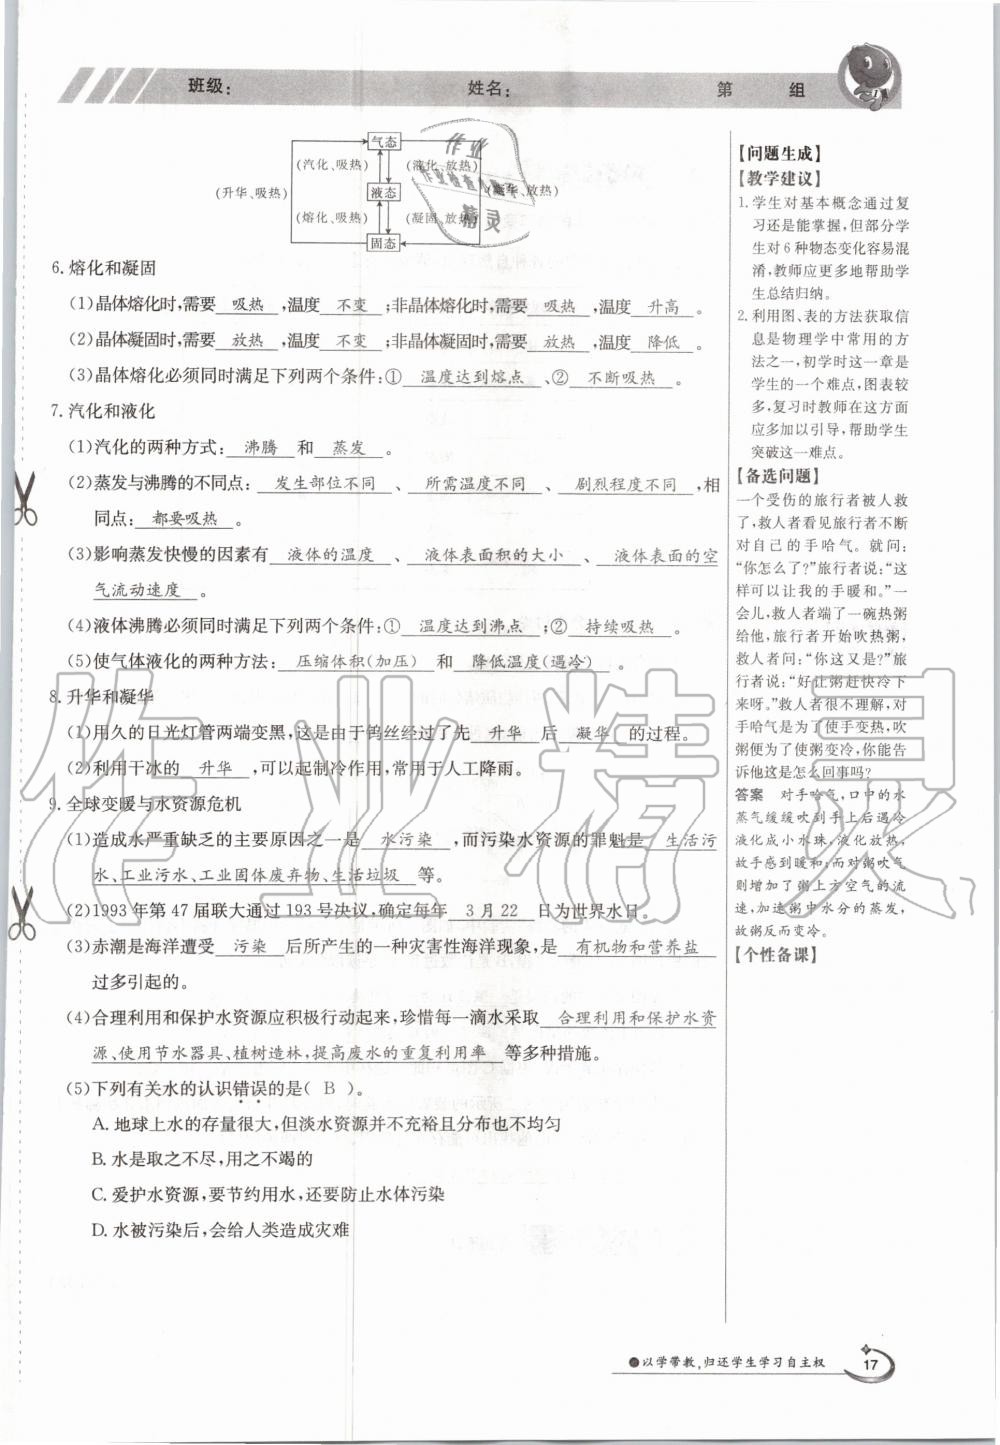 班级：　姓名：　第　组
气态
(汽化、吸热)　(液化、放热)
(升华、吸热)　液态　(凝华、放热)
(熔化、吸热)　(凝固、放热)
固态
6. 熔化和凝固
(1)晶体熔化时,需要 吸热 ,温度 不变 ;非晶体熔化时,需要 吸热 ,温度 升高 。
(2)晶体凝固时,需要 放热 ,温度 不变 ;非晶体凝固时,需要 放热 ,温度 降低 。
(3)晶体熔化必须同时满足下列两个条件:① 温度达到熔点 、② 不断吸热 。
7. 汽化和液化
(1)汽化的两种方式: 沸腾 和 蒸发 。
(2)蒸发与沸腾的不同点: 发生部位不同 、 所需温度不同 、 剧烈程度不同 ,相
同点: 都要吸热 。
(3)影响蒸发快慢的因素有 液体的温度 、 液体表面积的大小 、 液体表面的空
气流动速度 。
(4)液体沸腾必须同时满足下列两个条件:① 温度达到沸点 ;② 持续吸热 。
(5)使气体液化的两种方法: 压缩体积(加压) 和 降低温度(遇冷) 。
8. 升华和凝华
(1)用久的日光灯管两端变黑,这是由于钨丝经过了先 升华 后 凝华 的过程。
(2)利用干冰的 升华 ,可以起制冷作用,常用于人工降雨。
9. 全球变暖与水资源危机
(1)造成水严重缺乏的主要原因之一是 水污染 ,而污染水资源的罪魁是 生活污
水、工业污水、工业固体废弃物、生活垃圾 等。
(2)1993年第47届联大通过193号决议,确定每年 3月22 日为世界水日。
(3)赤潮是海洋遭受 污染 后所产生的一种灾害性海洋现象,是 有机物和营养盐
过多引起的。
(4)合理利用和保护水资源应积极行动起来,珍惜每一滴水采取 合理利用和保护水资
源、使用节水器具、植树造林,提高废水的重复利用率 等多种措施。
(5)下列有关水的认识错误的是( B )。
A. 地球上水的存量很大,但淡水资源并不充裕且分布也不均匀
B. 水是取之不尽,用之不竭的
C. 爱护水资源,要节约用水,还要防止水体污染
D. 水被污染后,会给人类造成灾难
【问题生成】
【教学建议】
1. 学生对基本概念通过复
习还是能掌握,但部分学
生对6种物态变化容易混
淆,教师应更多地帮助学
生总结归纳。
2. 利用图、表的方法获取信
息是物理学中常用的方
法之一,初学时这一章是
学生的一个难点,图表较
多,复习时教师在这方面
应多加以引导,帮助学生
突破这一难点。
【备选问题】
一个受伤的旅行者被人救
了,救人者看见旅行者不断
对自己的手哈气。就问:
“你怎么了?”旅行者说:“这
样可以让我的手暖和。”一
会儿,救人者端了一碗热粥
给他,旅行者开始吹热粥,
救人者问:“你这又是?”旅
行者说:“好让粥赶快冷下
来呀。”救人者很不理解,对
手哈气是为了使手变热,吹
粥便为了使粥变冷,你能告
诉他这是怎么回事吗?
答案　对手哈气,口中的水
蒸气缓缓吹到手上后遇冷
液化成小水珠,液化放热,
故手感到暖和;而对粥吹气
则增加了粥上方空气的流
速,加速粥中水分的蒸发,
故粥反而变冷。
【个性备课】
●以学带教,归还学生学习自主权
17
作业
作业检查
精灵
作业精灵